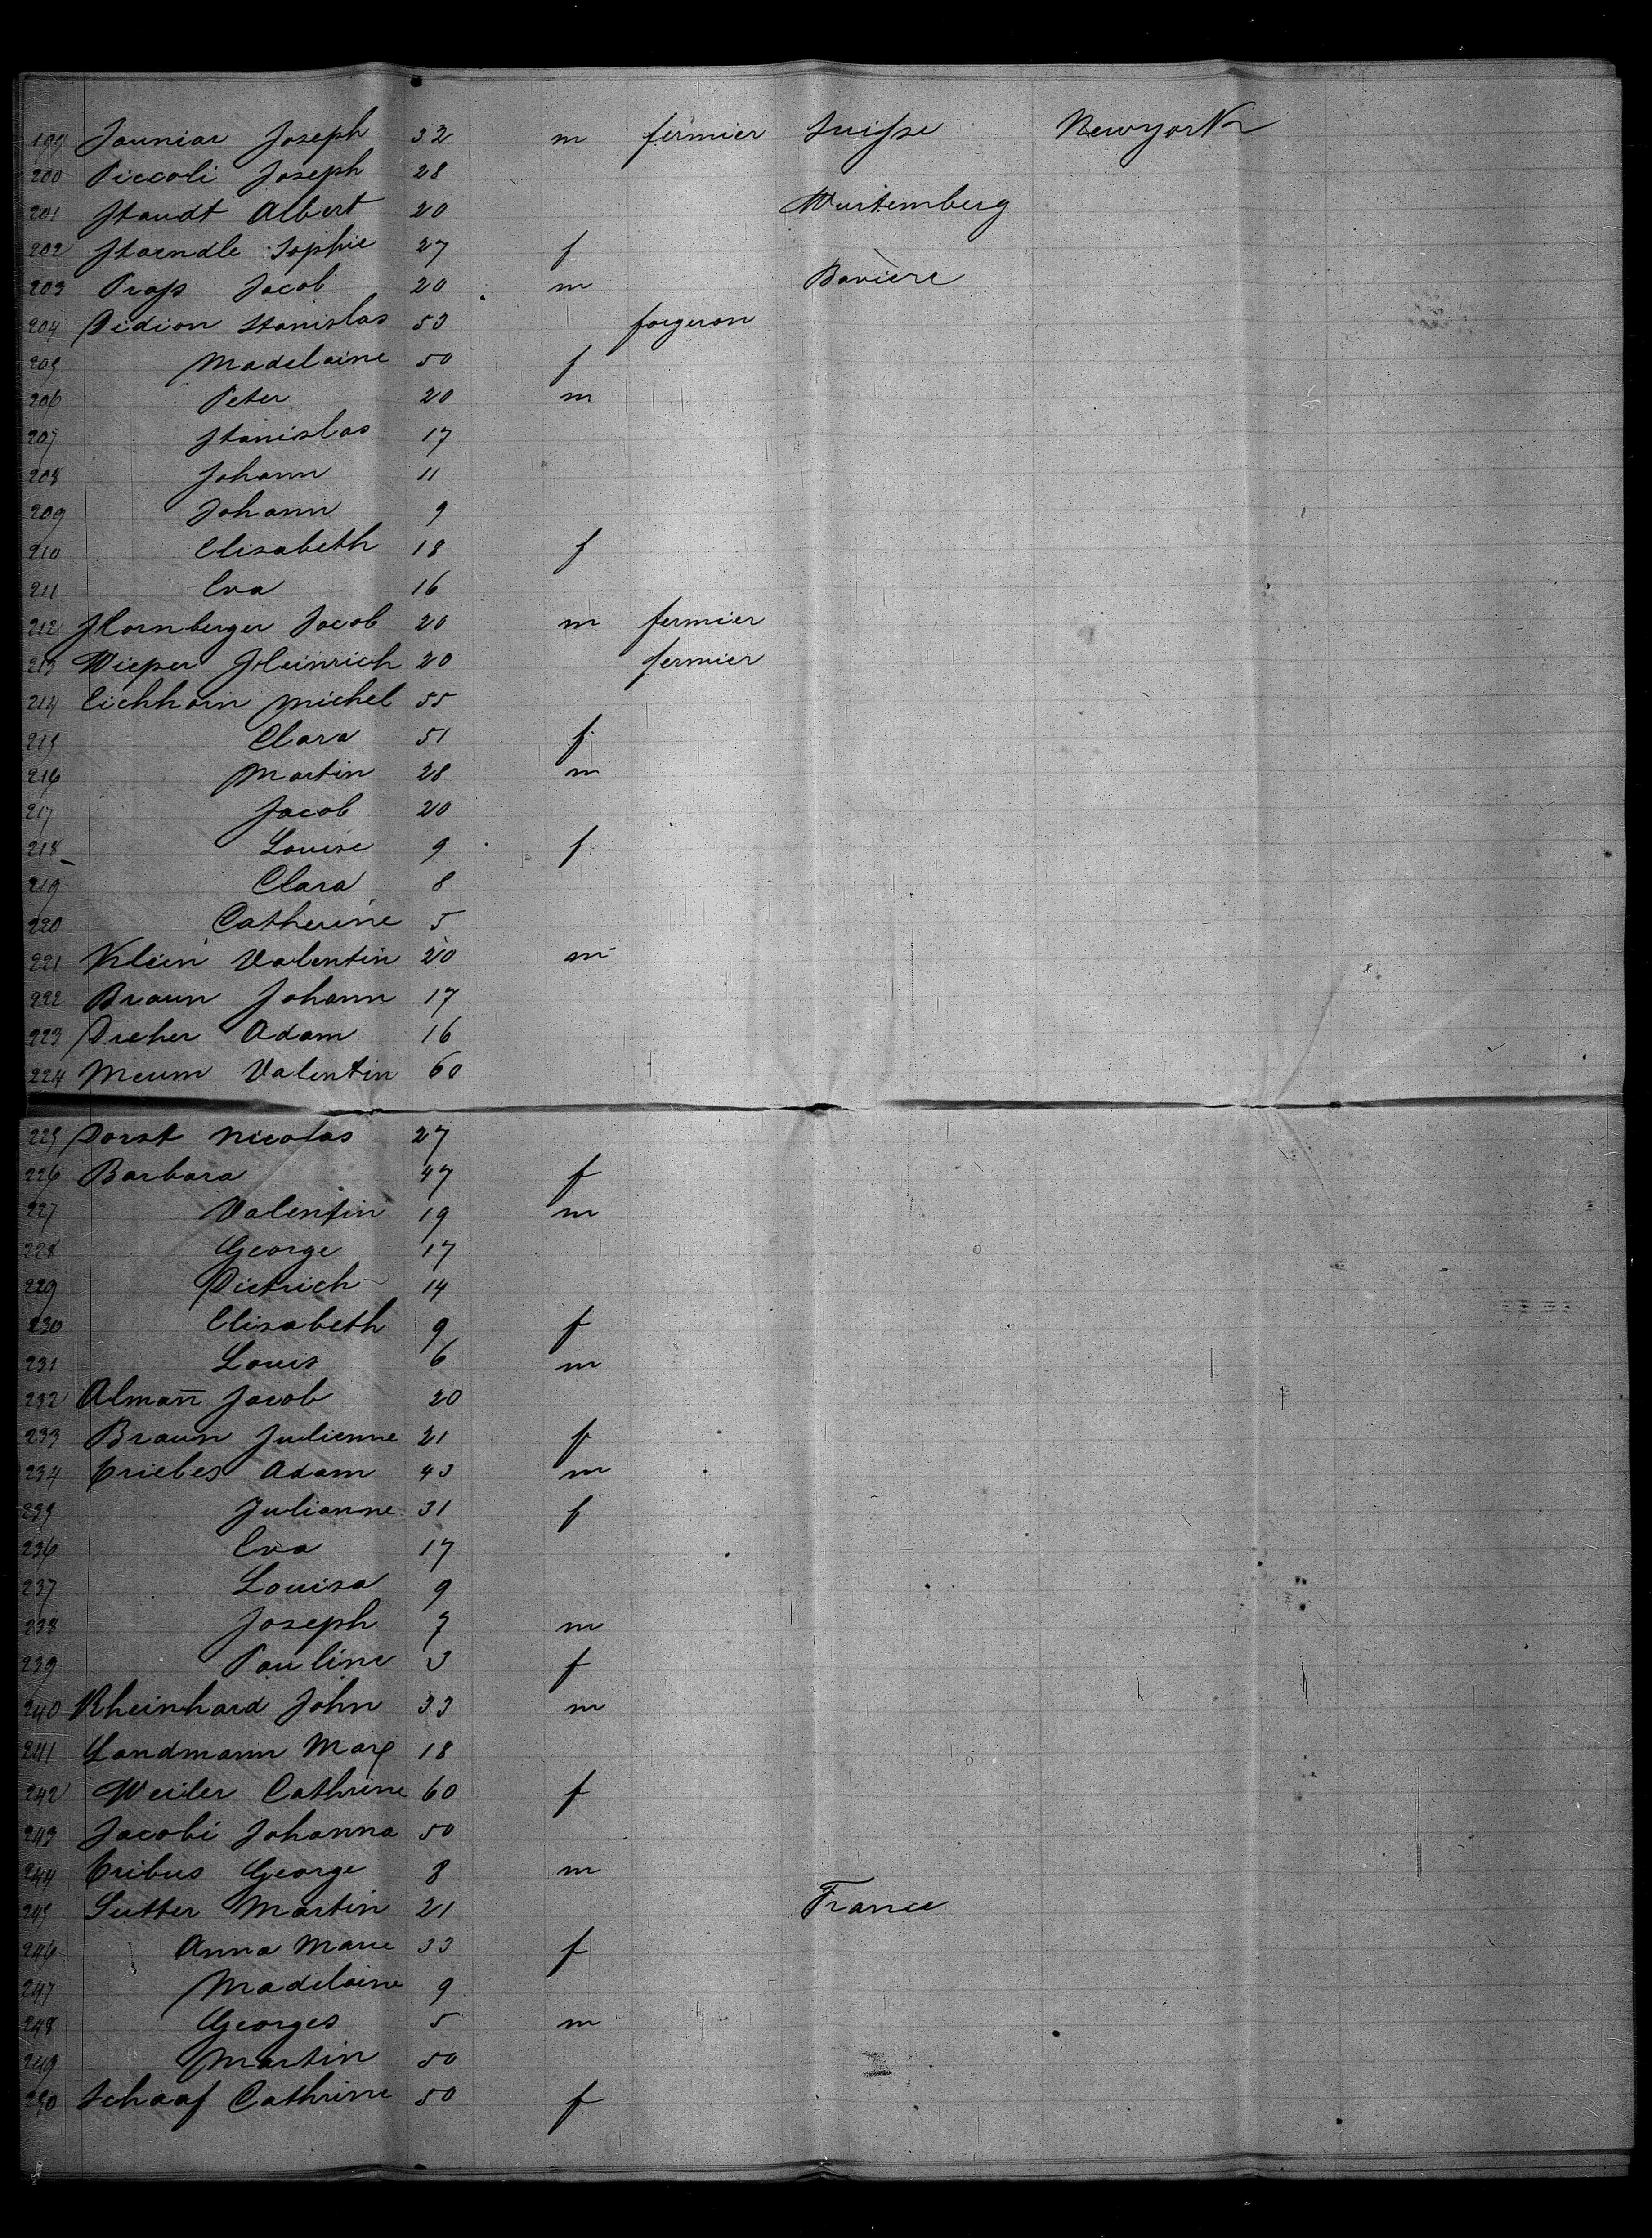 199 Jouniar Joseph 32 m fermier Suisse Newyork
200 Piccoli Joseph 28
201 Staudt Albert 20 Wurtemberg
202 Staendle Sophie 27 f
203 Prass Jacob 20 m Bavière
204 Didion Stanislas 53 forgeron
205 Madelaine 50 f
206 Peter 20 m
207 Stanislas 17
208 Johann 11
209 Johann 9
210 Elisabeth 18 f
211 Eva 16
212 Hornberger Jacob 20 m fermier
213 Wieser Heinrich 20 fermier
214 Eichhorn Michel 55
215 Clara 51 f
216 Martin 28 m
217 Jacob 20
218 Louise 9 f
219 Clara 8
220 Catherine 5
221 Klein Valentin 20 m
222 Braun Johann 17
223 Dreher Adam 16
224 Meum Valentin 60
225 Dorst Nicolas 27
226 Barbara 47 f
227 Valentin 19 m
228 George 17
229 Dietrich 14
230 Elisabeth 9 f
231 Louis 6 m
232 Alman̄ Jacob 20
233 Braun Julienne 21 f
234 Criebes Adam 43 m
235 Julianne 31 f
236 Eva 17
237 Louisa 9
238 Joseph 7 m
239 Pauline 3 f
240 Rheinhard John 33 m
241 Landmann Marx 18
242 Weiler Cathrine 60 f
243 Jacobi Johanna 50
244 Cribus George 8 m
245 Sutter Martin 21 France
246 Anna Marie 33 f
247 Madelaine 9
248 Georges 5 m
249 Martin 50
250 Schaaf Cathrine 50 f